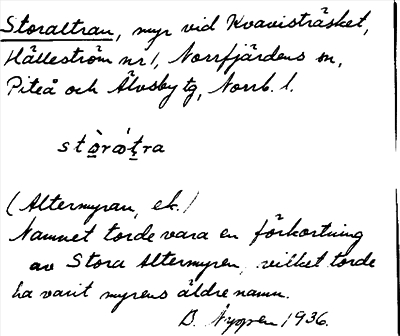 Storaltran, myr vid Kvavisträsket,
Hälleström nr 1, Norrfjärdens sn,
Piteå och Älvsby tg, Norrb. l.
(Altermyran, ek.)
Namnet torde vara en förkortning
av Stora Altermyren, vilket torde
ha varit myrens äldre namn.
B. Nygren 1936.